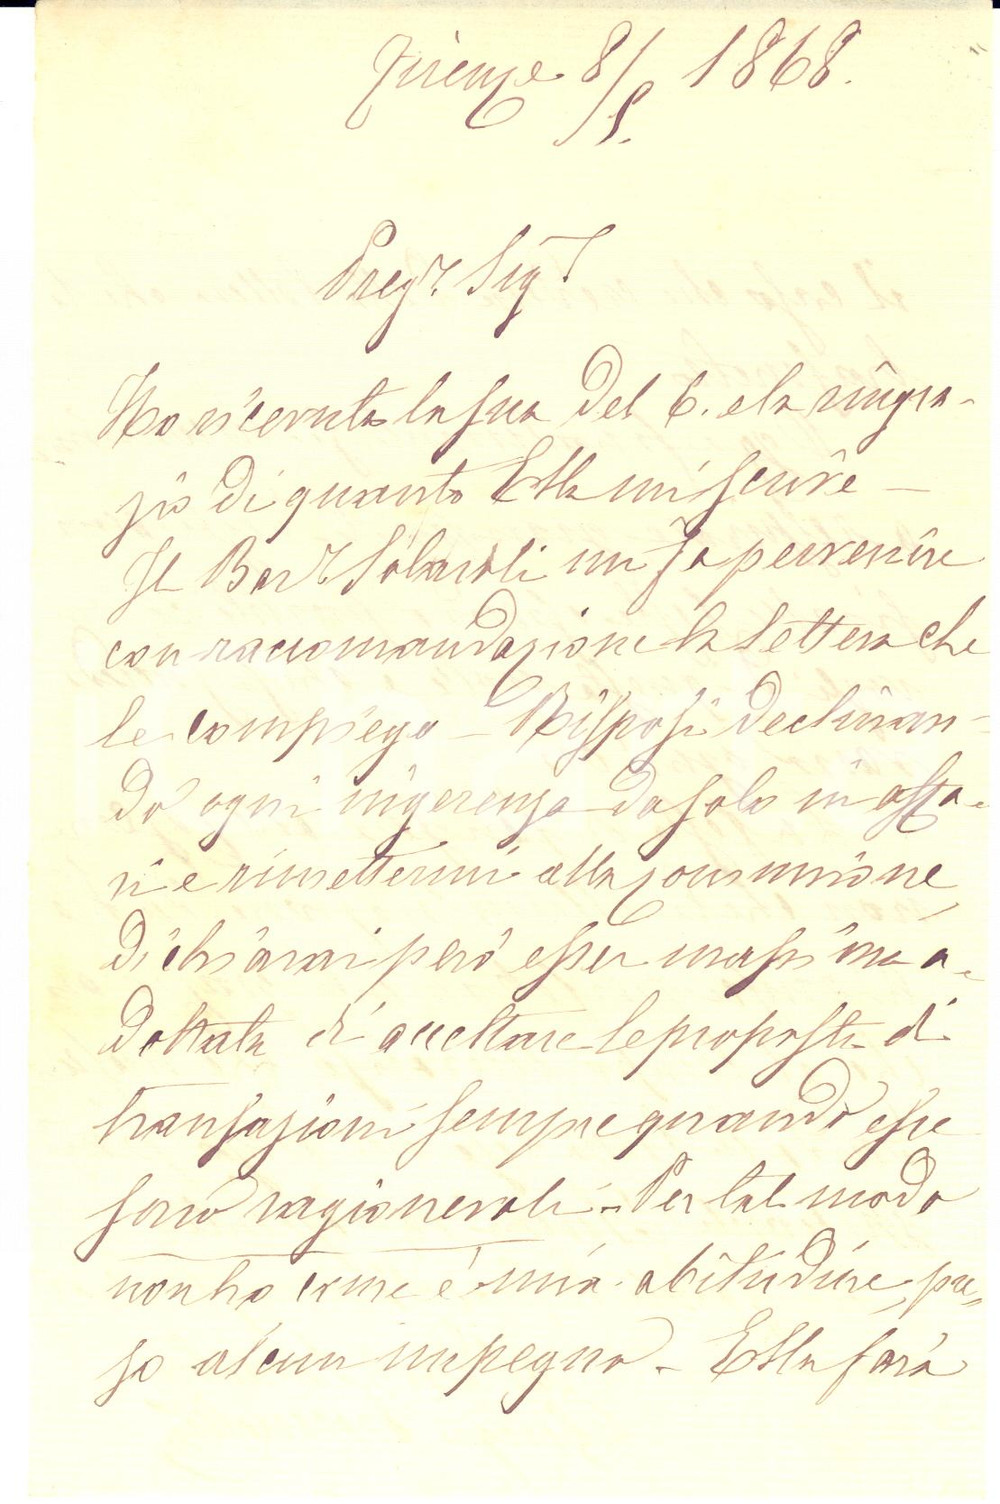 Firenze 8/5. 1868.
Preg.r Sig.r
Ho ricevuta la sua del 6. e la ringra-
zio di quanto Ella mi scrive —
Il Bar Solaroli mi fa pervenire
con raccomandazione la lettera che
le compiego — Risposi declinan-
do ogni ingerenza da solo in affa-
ri e rimettermi alla commissione,
Dichiarai però esser massima a-
dottata di accettare le proposte di
transazioni sempre quando esse
sono ragionevoli - Per tal modo
non ho come è mia abitudine, pre-
so alcun impegno - Ella farà